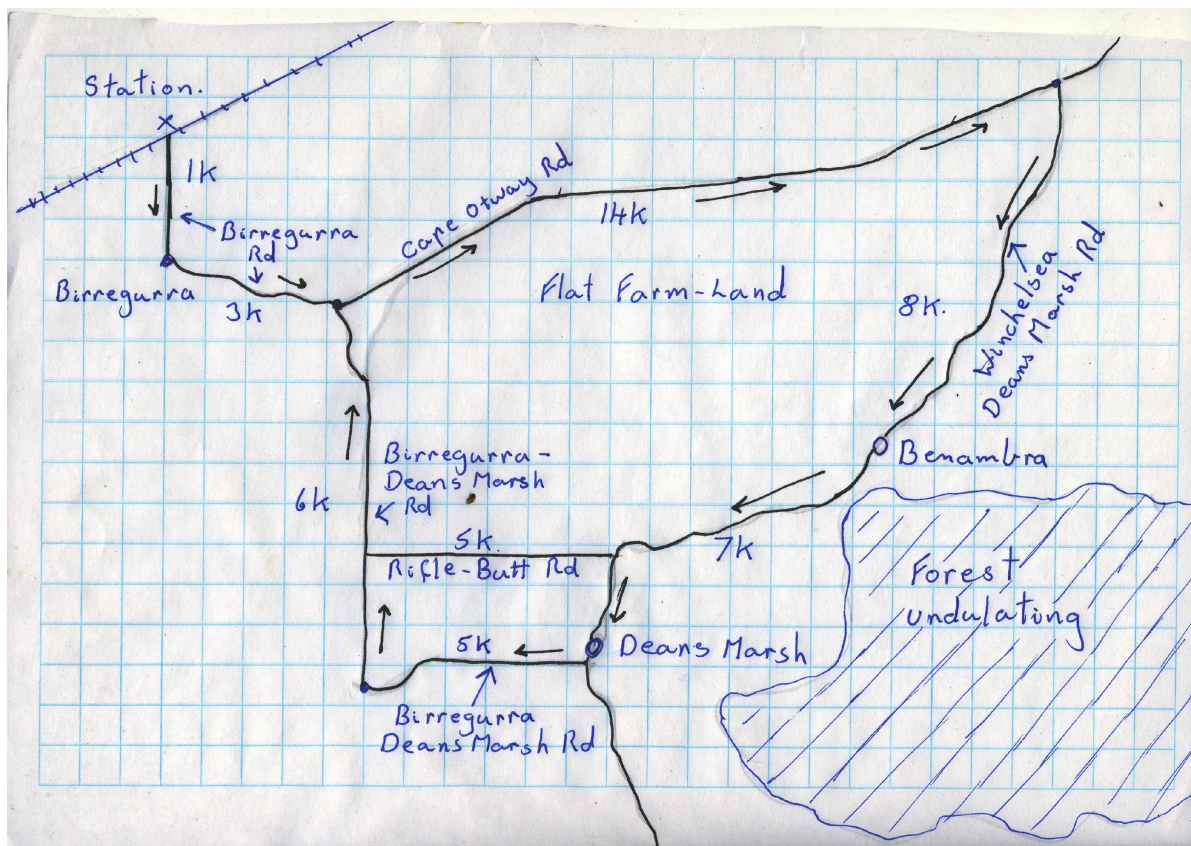 Station.
1K
Birregurra
Rd
Birregurra
3K
Cape Otway Rd
14K
Flat Farm-Land
8K.
Winchelsea
Deans Marsh Rd
Benambra
Birregurra-
Deans Marsh
Rd
6K
5K.
Rifle-Butt Rd
7K
Forest
undulating
Deans Marsh
5K
Birregurra
Deans Marsh Rd